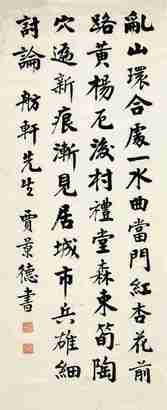 亂山環合處一水曲當門紅杏花前
路黃楊厄後村禮堂森束筍陶
穴遍新痕漸見居城市兵雄細
討論 舫軒先生 賈景德書